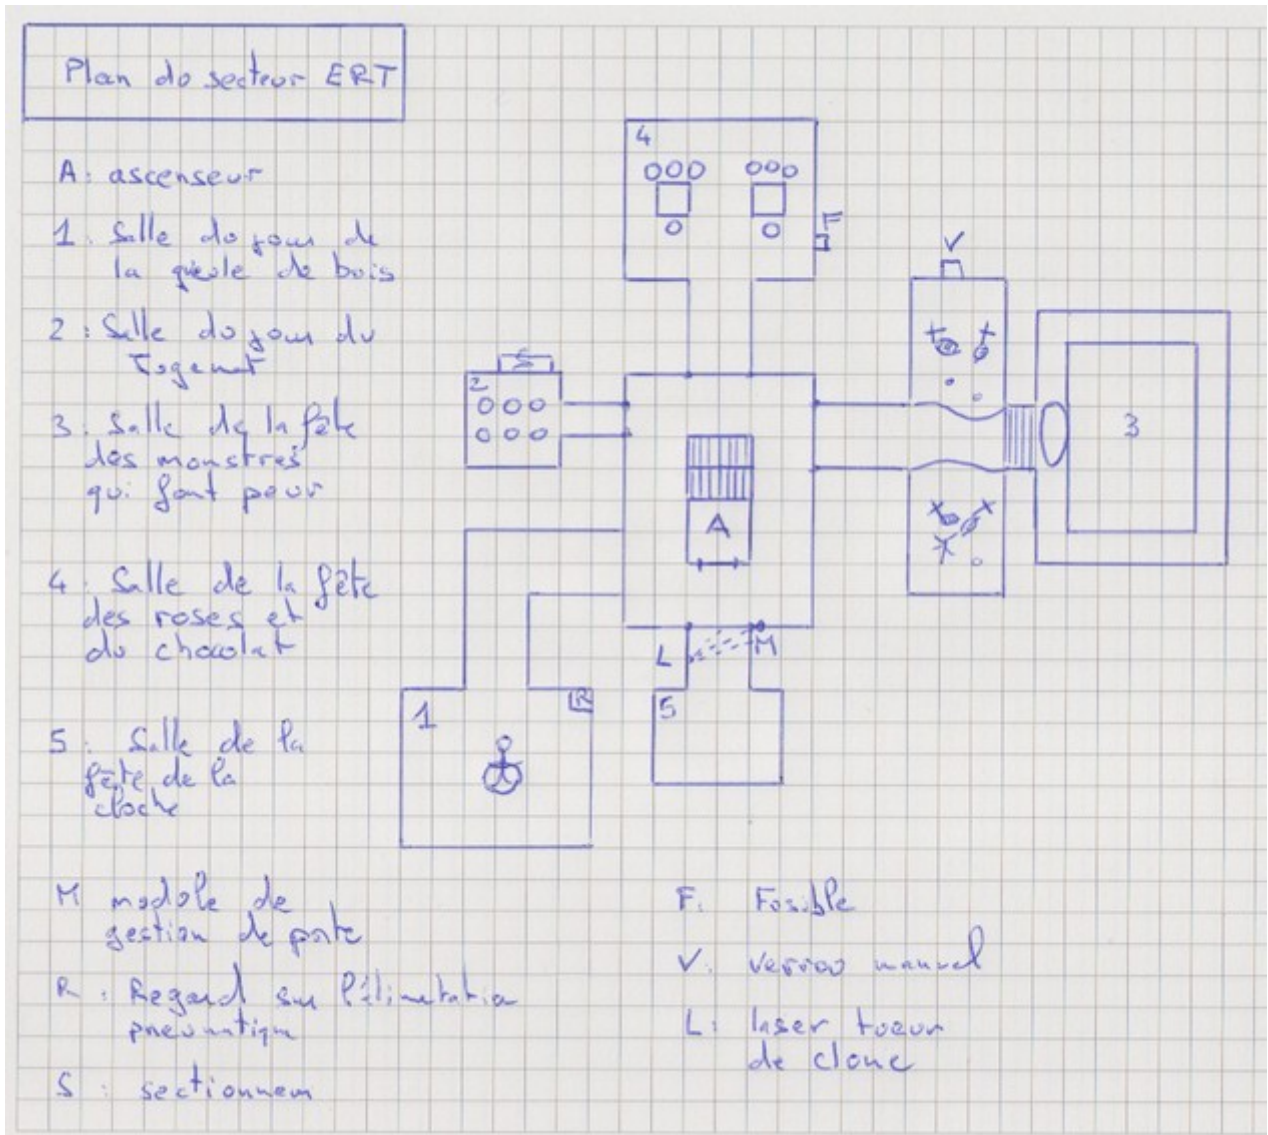 Plan du secteur ERT
A: ascenseur
1: Salle du jour de
la gueule de bois
2: Salle du jour du
3: Salle de la fête
des monstres
qui font peur
4: Salle de la fête
des roses et
du chocolat
5: Salle de la
fête de la
cloche
M module de
gestion de porte
R: Regard sur l'alimentation
pneumatique
S: sectionneur
F: Fusible
V: verrou manuel
L: laser tueur
de clone
4
F
V
S
2
3
A
L
M
5
R
1